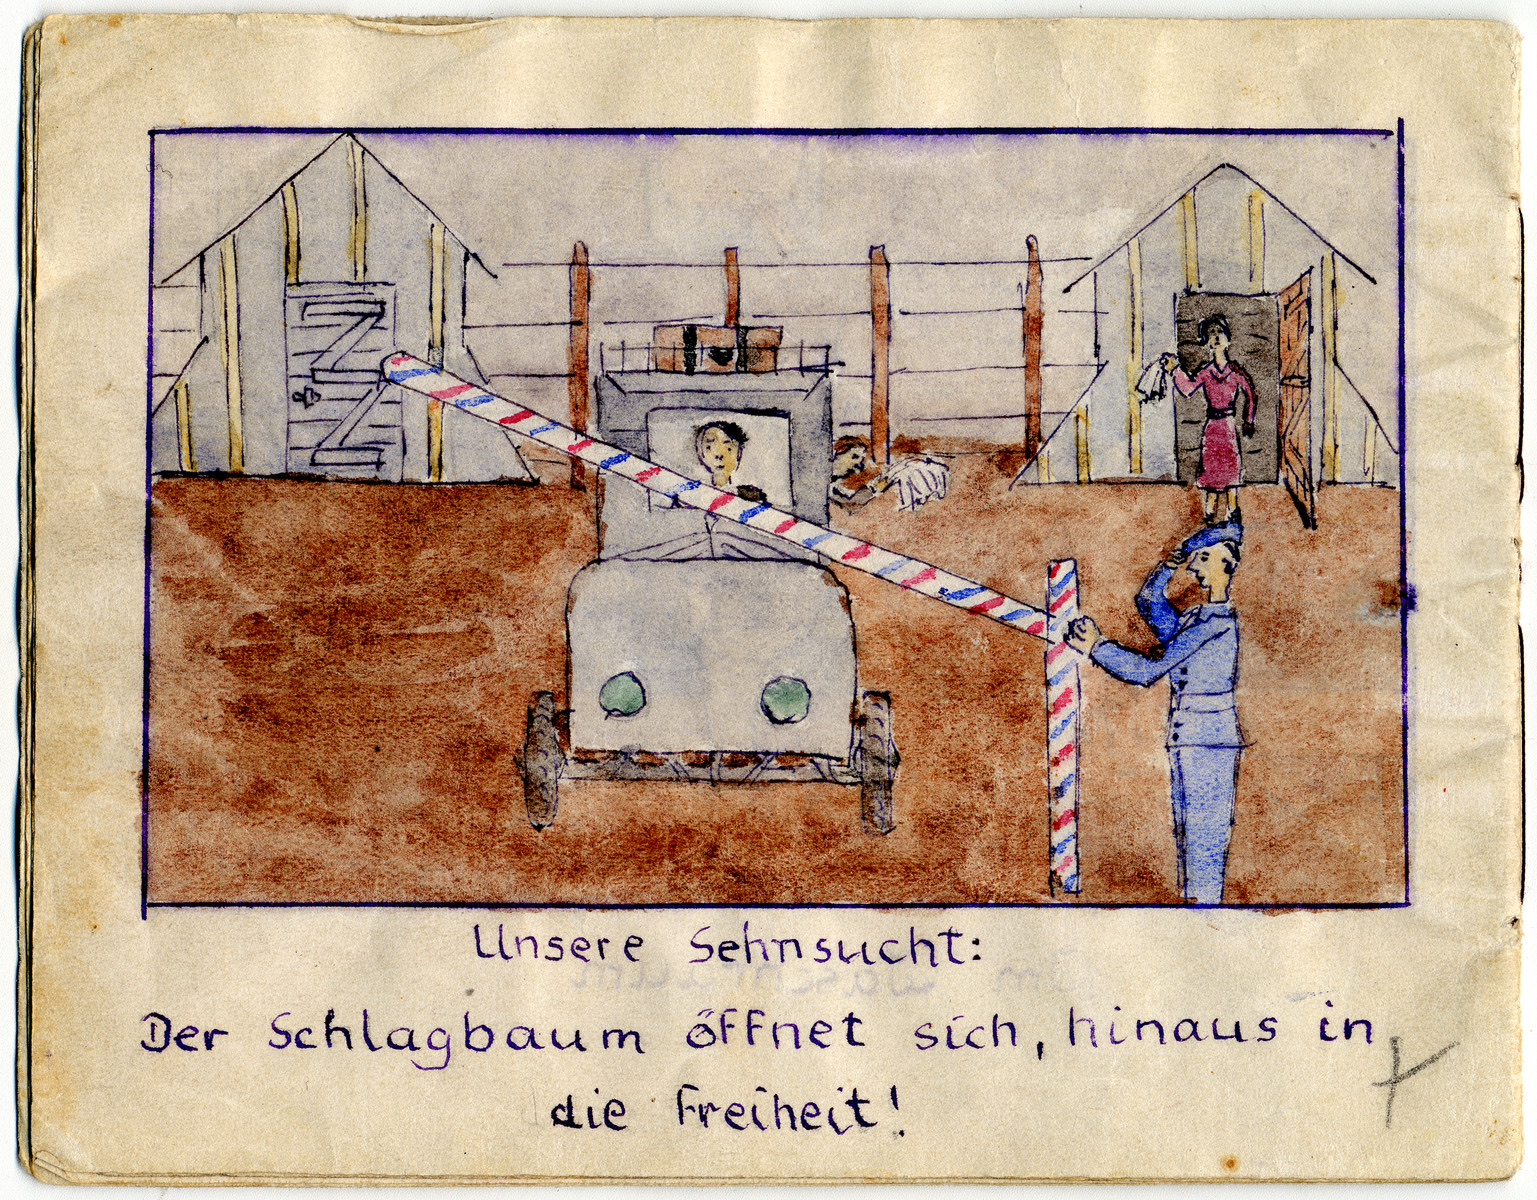 Unsere Sehnsucht:
Der Schlagbaum öffnet sich, hinaus in
die Freiheit!